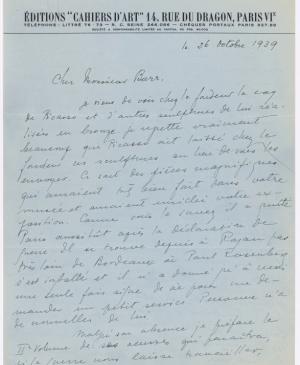 ÉDITIONS "CAHIERS D'ART" 14, RUE DU DRAGON, PARIS VIᵉ
le 26 Octobre 1939
Cher Monsieur Barr,
Je viens de voir chez le fondeur le coq
de Picasso et d'autres sculptures de lui réa-
lisées en bronze. Je regrette vraiment
beaucoup que Picasso ait laissé chez le
fondeur ses sculptures au lieu de vous les
envoyer. Ce sont des pièces magnifiques
qui auraient bien fait dans votre
musée et auraient enrichi votre ex-
position. Comme vous le savez il a quitté
Paris aussitôt après la déclaration de
guerre. Il se trouve depuis à Royan pas
très loin de Bordeaux où Paul Rosenberg
s'est installé et il n'a donné
une seule fois signe de vie pour me de-
mander un petit service. Personne n'a
de nouvelles de lui.
Malgré son absence je prépare le
IIᵉ volume de ses œuvres qui paraîtra,
si la guerre nous laisse travailler,